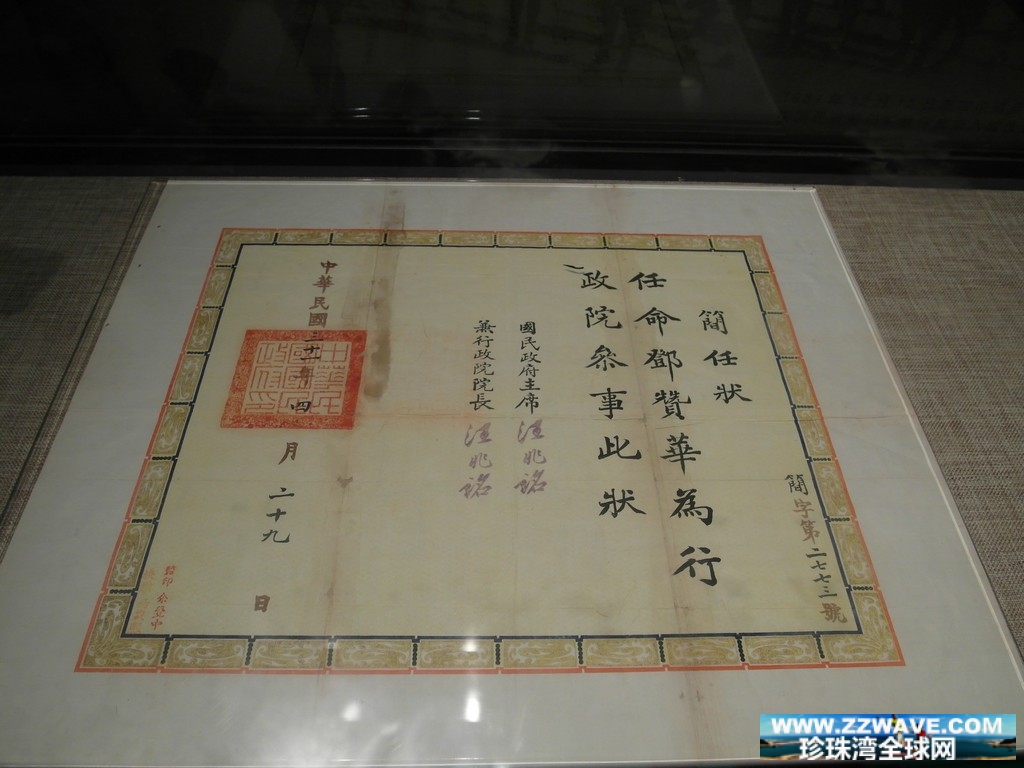 簡任狀
任命鄧贊華為行
政院參事此狀
國民政府主席 汪兆銘
兼行政院院長 汪兆銘
中華民國三十一年四月二十九日
簡字第二七七三號
WWW.ZZWAVE.COM
珍珠湾全球网